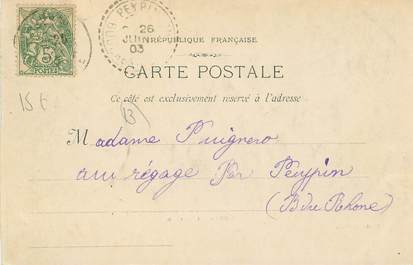 PEYPIN
26
JUIN
03
RÉPUBLIQUE FRANÇAISE
CARTE POSTALE
Ce côté est exclusivement réservé à l'adresse
Madame Puignero
au régage Par Peypin
(B du Rhone)
5
POSTES